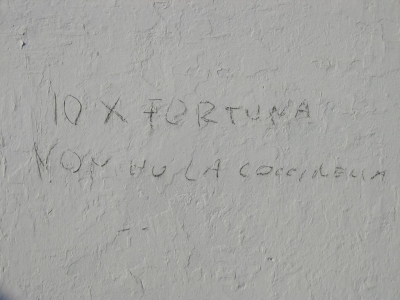 IO X FORTUNA
NON HO LA COCCINELLA